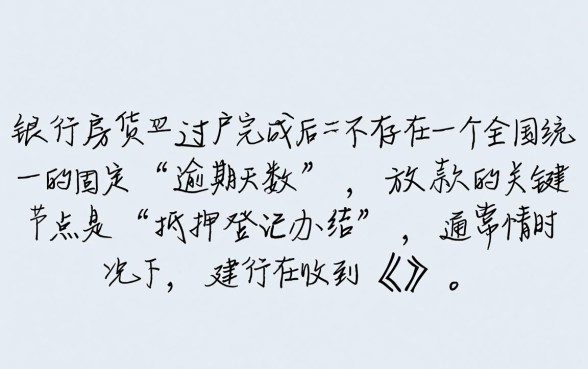 银行房货皿过户完成后二不存在一个全国统
一的固定“逾期天数”，放款的关键
节点是“抵押登记办结”，通常情时
况下，建行在收到《》。